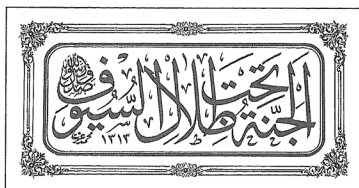 الجنة تحت ظلال السيوف
١٣١٣